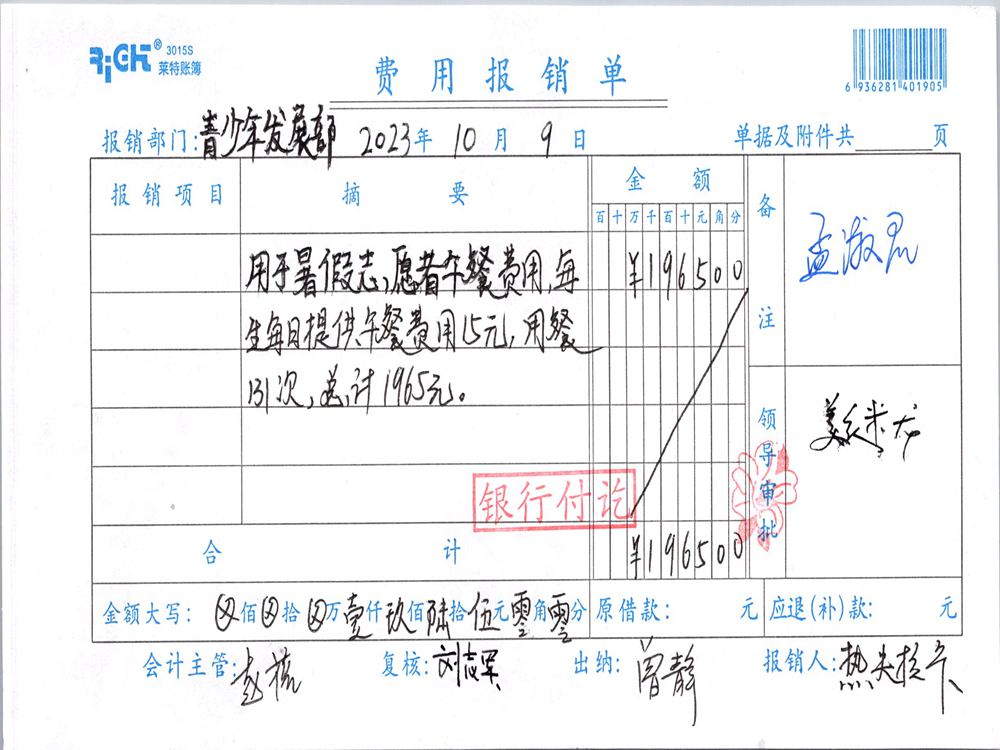 RiCH® 3015S
莱特账簿
费用报销单
6 936281 401905
报销部门:青少年发展部 2023年 10月 9日 单据及附件共 页
报销项目 摘要 金额 备注
百十万千百十元角分
用于暑假志愿者午餐费用,每 ¥196500
生每日提供午餐费用15元,用餐
131次,总计1965元。
领导审批
银行付讫
合计 ¥196500
金额大写: 佰 拾 万壹仟玖佰陆拾伍元零角零分 原借款: 元 应退(补)款: 元
会计主管: 复核:刘志军 出纳:曾静 报销人:热夹提卡